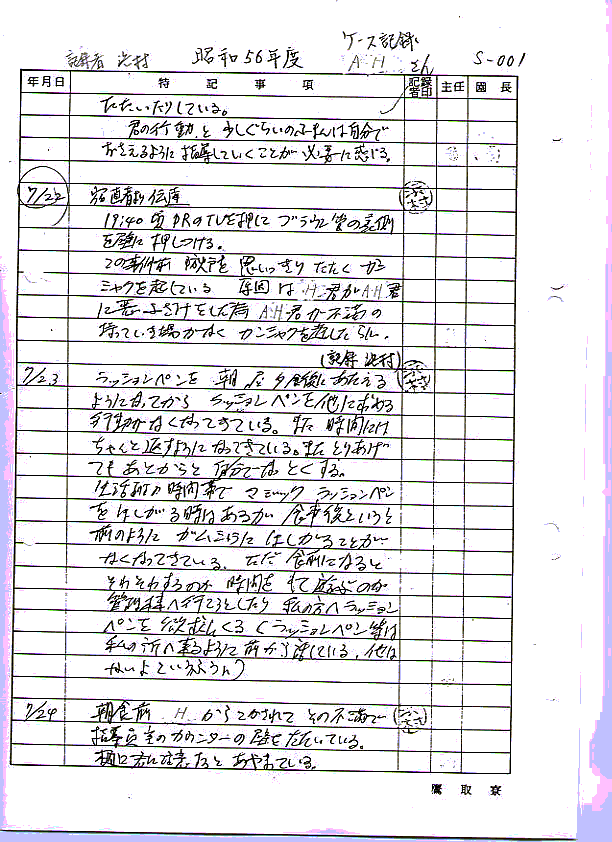 ケース記録
記録者 北村 昭和56年度 A・H さん S-001
年月日 特記事項 記録者印 主任 園長
たたいたりしている。
君の行動と少しぐらいのふまんは自分で
おさえるように指導していくことが必要に感じる。
7/22 宿直者より伝達
19:40頃 DRのTVを押して ブラウン管の裏側
を壁に押しつける。
この事件前 網戸を思いっきりたたくカン
シャクを起している 原因は H君がA・H君
に悪ふざけをした為 A・H君が不満の
持っていき場がなく カンシャクを起したらしい。
(記録 北村)
7/23 ラッションペンを 朝、昼、夕食後にあたえる
ようになってから ラッションペンを他に求める
行動がなくなってきている。また 時間には
ちゃんと返すようになってきている。また とりあげ
てもあとからと 自分でなっとくする。
生活棟の時間帯で マジック ラッションペン
をほしがる時はあるが 食事後というと
前のように がむしゃらに ほしがることが
なくなってきている。ただ 食前になると
そわそわするのか 時間を
管理棟へ行こうとしたり 私の方へラッション
ペンを要求しにくる(ラッションペン等は
私の所へ来るように前から話している。他は
ないよというふうに)
7/24 朝食前 H からこかされて その不満で
指導員室のカウンターの壁をたたいている。
樋口君に注意だと あやまっている。
鷹取寮